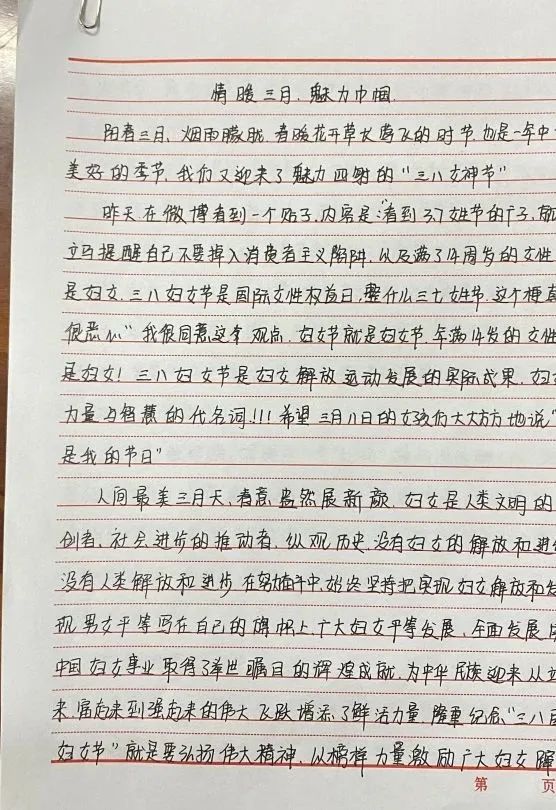 情暖三月、魅力巾帼
阳春三月、烟雨朦胧、春暖花开草长莺飞的时节也是一年中
美好的季节、我们又迎来了魅力四射的“三八女神节”
昨天在微博看到一个贴子、内容是:“看到37女生节的广子、
立马提醒自己不要掉入消费者主义陷阱、以及满了14周岁的女性
是妇女、三八妇女节是国际女性权益日、整什么三七女生节、这个梗真
很恶心”我很同意这个观点、妇女节就是妇女节、年满14岁的女性
是妇女！三八妇女节是妇女解放运动发展的实际成果、妇女
力量与智慧的代名词!!!希望三月八日的女孩们大大方方地说“
是我的节日”
人间最美三月天、春意盎然展新颜、妇女是人类文明的
创者、社会进步的推动者、纵观历史、没有妇女的解放和进
没有人类解放和进步、在奋斗中、始终坚持把实现妇女解放和发
现男女平等写在自己的旗帜上、广大妇女平等发展、全面发展、
中国妇女事业取得了举世瞩目的辉煌成就、为中华民族迎来从立
来、富起来到强起来的伟大飞跃增添了鲜活力量、隆重纪念“三八
妇女节”就是要弘扬伟大精神、以榜样力量激励广大妇女
第 页